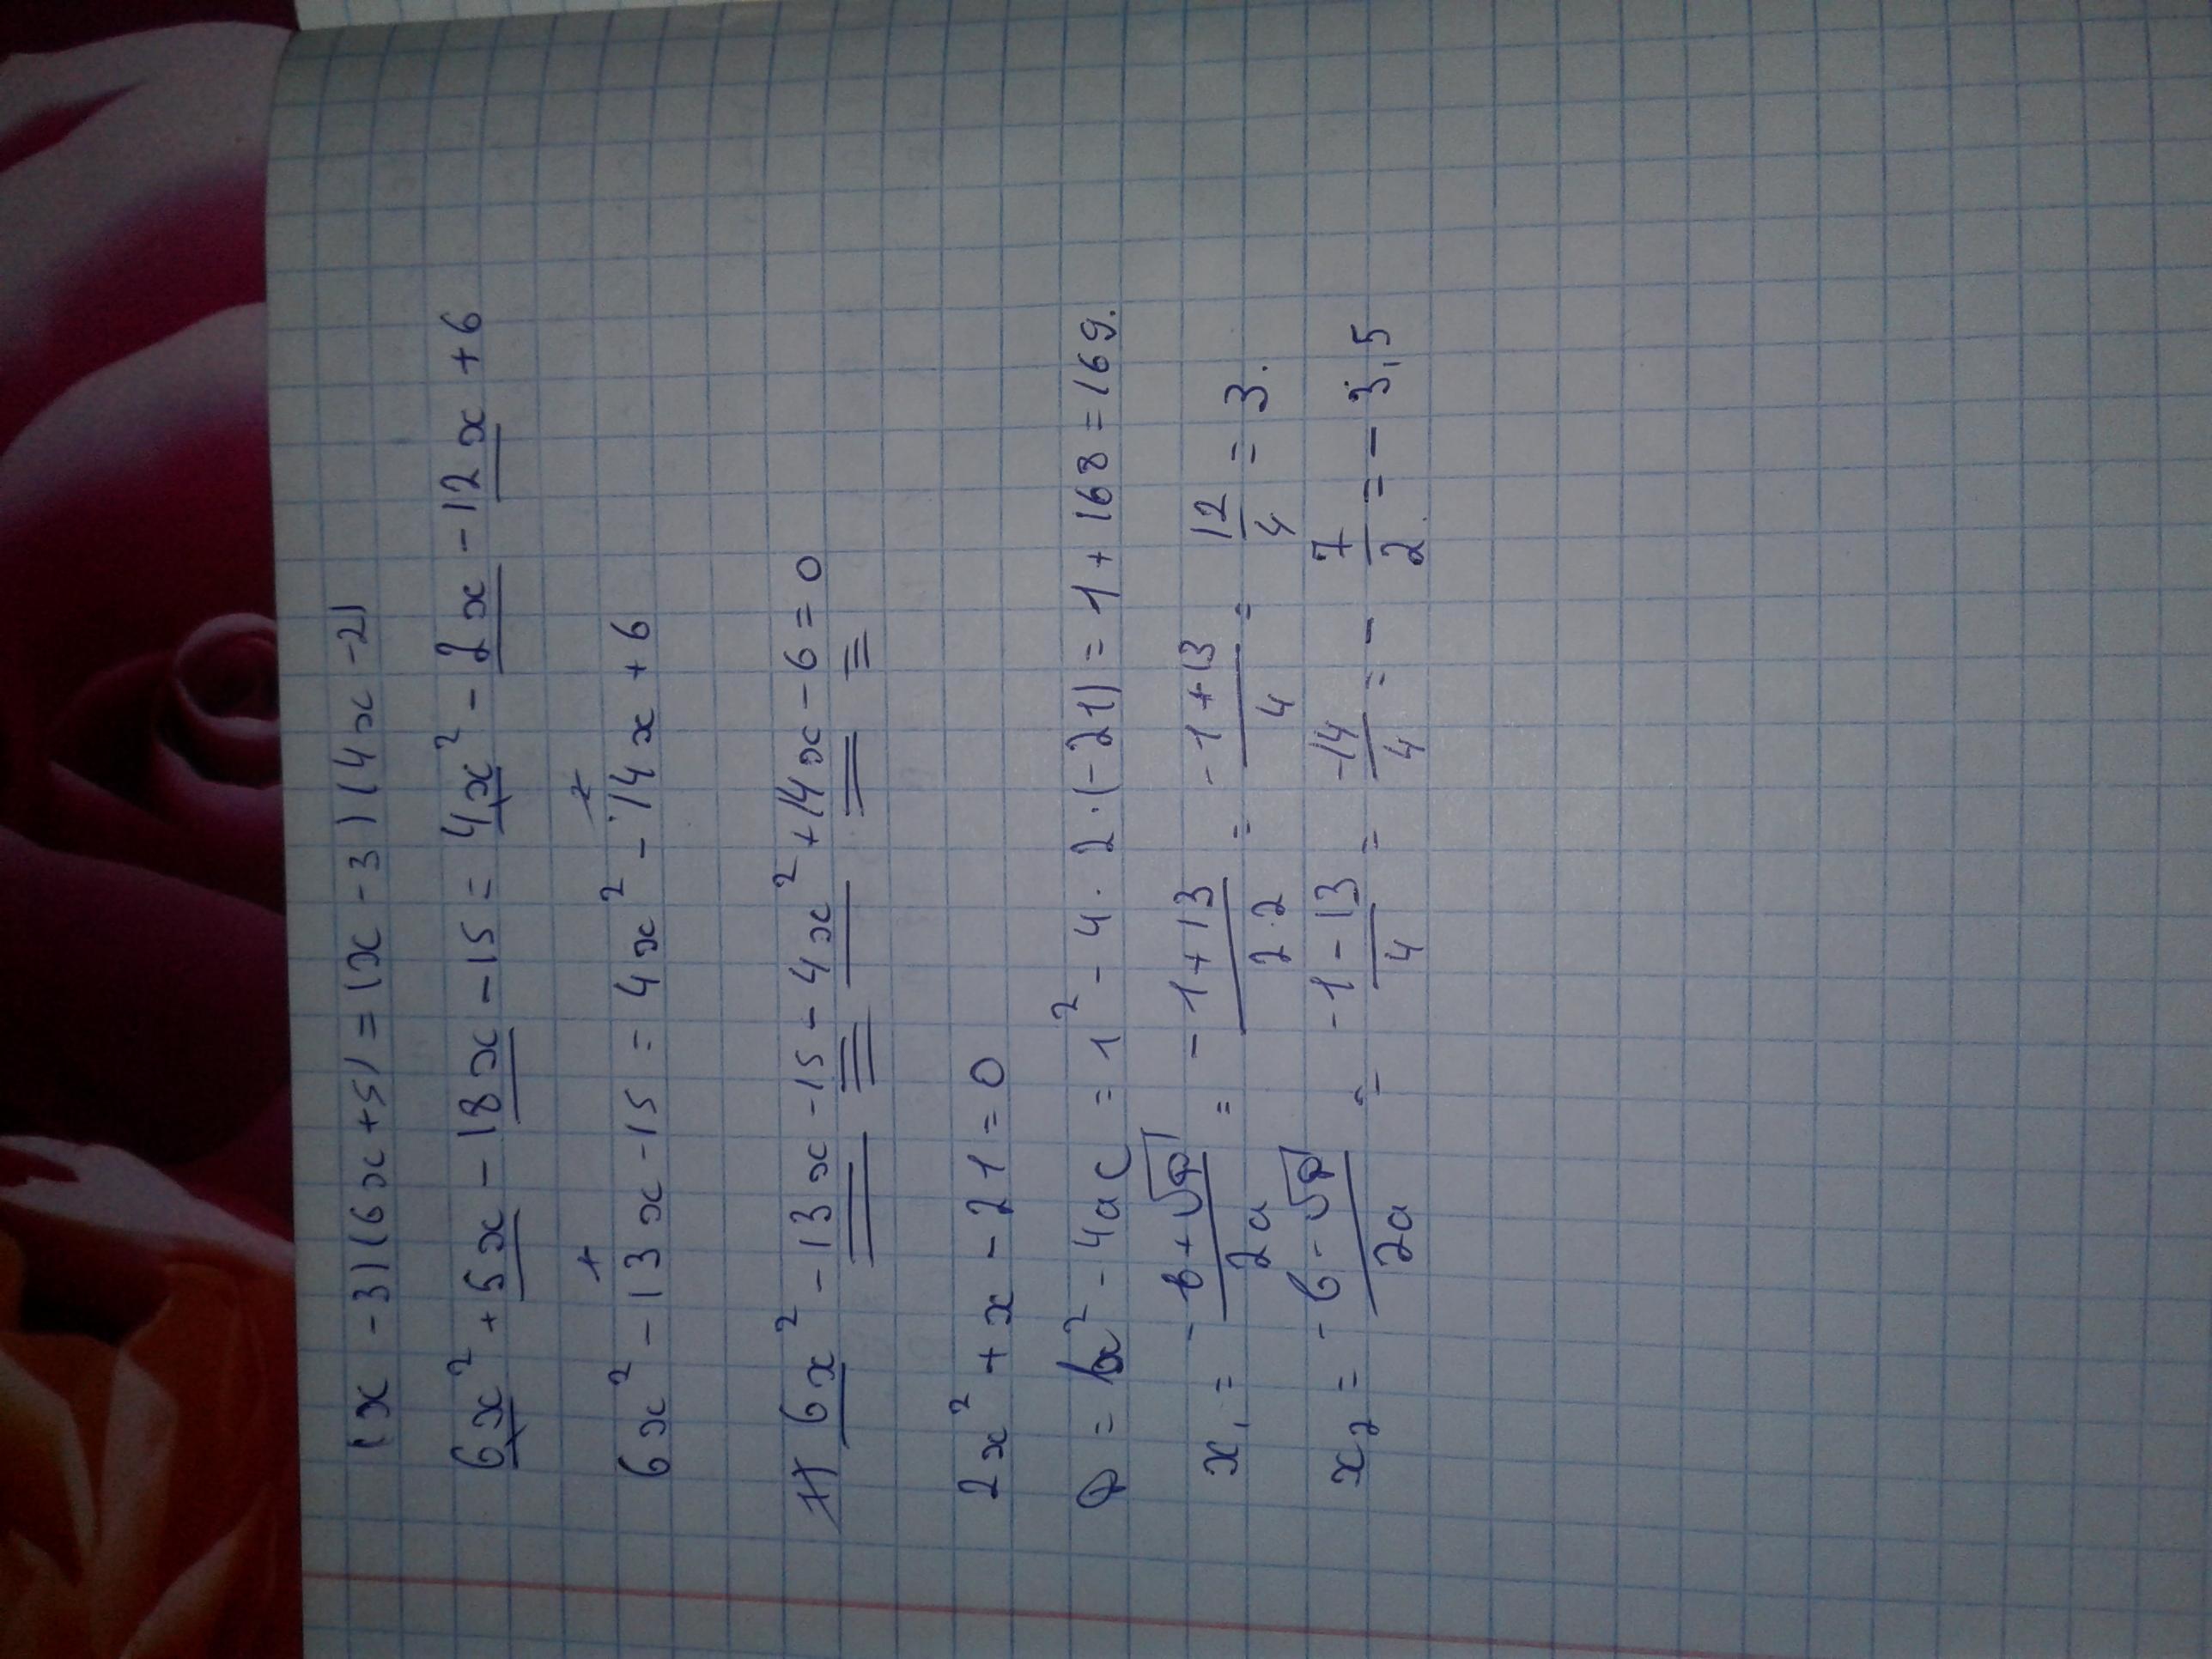 (x-3)(6x+5)=(x-3)(4x-2)
6x²+5x-18x-15=4x²-2x-12x+6
6x²-13x-15=4x²-14x+6
6x²-13x-15-4x²+14x-6=0
2x²+x-21=0
D=b²-4ac=1²-4·2·(-21)=1+168=169.
x₁=(-b+√D)/2a=(-1+13)/2·2=(-1+13)/4=12/4=3.
x₂=(-b-√D)/2a=(-1-13)/4=-14/4=-7/2=-3,5